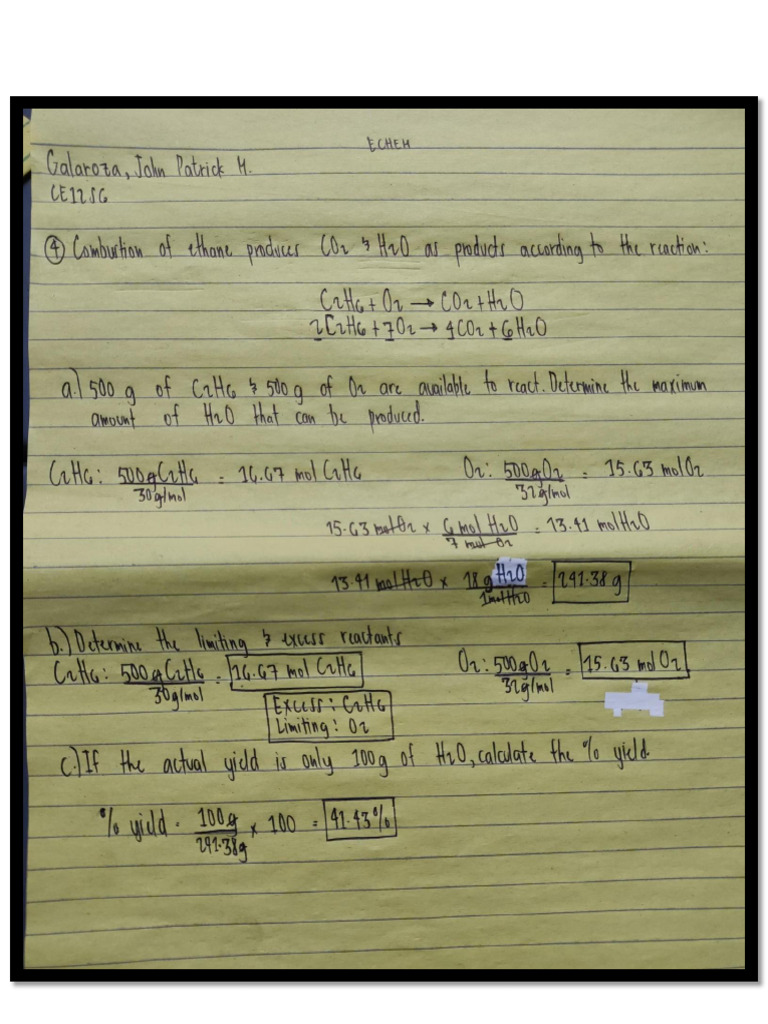 ECHEM
Galaroza, John Patrick M.
CE12S6
④ Combustion of ethane produces CO2 & H2O as products according to the reaction:
C2H6 + O2 → CO2 + H2O
2C2H6 + 7O2 → 4CO2 + 6H2O
a.) 500 g of C2H6 & 500 g of O2 are available to react. Determine the maximum
amount of H2O that can be produced.
C2H6: 500g C2H6 / 30g/mol = 16.67 mol C2H6 O2: 500g O2 / 32g/mol = 15.63 mol O2
15.63 mol O2 × 6 mol H2O / 7 mol O2 = 13.41 mol H2O
13.41 mol H2O × 18 g H2O / 1 mol H2O = 241.38 g
b.) Determine the limiting & excess reactants
C2H6: 500g C2H6 / 30g/mol = 16.67 mol C2H6 O2: 500g O2 / 32g/mol = 15.63 mol O2
Excess: C2H6
Limiting: O2
c.) If the actual yield is only 100g of H2O, calculate the % yield.
% yield = 100g / 241.38g × 100 = 41.43%